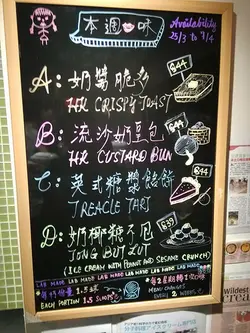 本週口味
Availability
25/3 to 7/4
A: 奶醬脆多
$44
HK CRISPY TOAST
B: 流沙奶皇包
$44
HK CUSTARD BUN
C: 英式糖漿餡餅
$44
TREACLE TART
D: 奶椰糖不甩
$39
TONG BUT LUT
(ICE CREAM WITH PEANUT AND SESAME CRUNCH)
LAB MADE LAB MADE LAB MADE LAB MADE LAB MADE
每份份量 1.5球
EACH PORTION 1.5 SCOOPS
MENU CHANGES
EVERY 2 WEEKS
Wildest